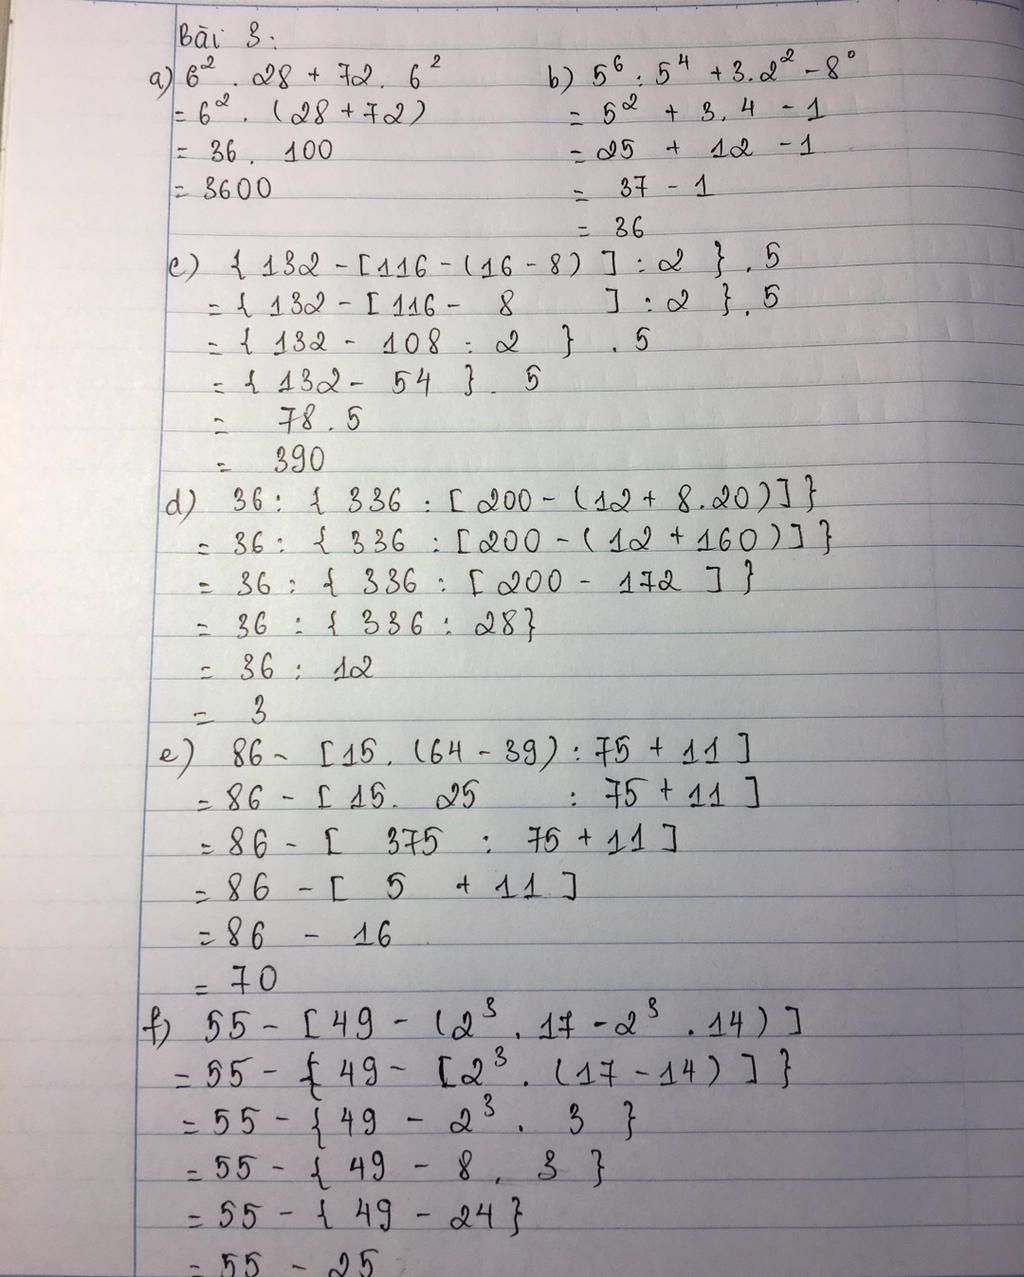 Bài 3:
a) 6² . 28 + 72 . 6²
= 6² . (28 + 72)
= 36 . 100
= 3600
b) 5⁶ : 5⁴ + 3 . 2² - 8⁰
= 5² + 3 . 4 - 1
= 25 + 12 - 1
= 37 - 1
= 36
c) { 132 - [ 116 - ( 16 - 8 ) ] : 2 } . 5
= { 132 - [ 116 - 8 ] : 2 } . 5
= { 132 - 108 : 2 } . 5
= { 132 - 54 } . 5
= 78 . 5
= 390
d) 36 : { 336 : [ 200 - ( 12 + 8 . 20 ) ] }
= 36 : { 336 : [ 200 - ( 12 + 160 ) ] }
= 36 : { 336 : [ 200 - 172 ] }
= 36 : { 336 : 28 }
= 36 : 12
= 3
e) 86 - [ 15 . ( 64 - 39 ) : 75 + 11 ]
= 86 - [ 15 . 25 : 75 + 11 ]
= 86 - [ 375 : 75 + 11 ]
= 86 - [ 5 + 11 ]
= 86 - 16
= 70
f) 55 - [ 49 - ( 2³ . 17 - 2³ . 14 ) ]
= 55 - { 49 - [ 2³ . ( 17 - 14 ) ] }
= 55 - { 49 - 2³ . 3 }
= 55 - { 49 - 8 . 3 }
= 55 - { 49 - 24 }
= 55 - 25